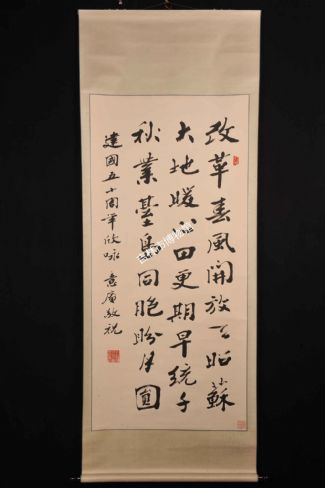 改革春風開放天昭蘇
大地暖心田更期早統千
秋業臺島同胞盼月圓
建國五十周年欣咏 敬祝